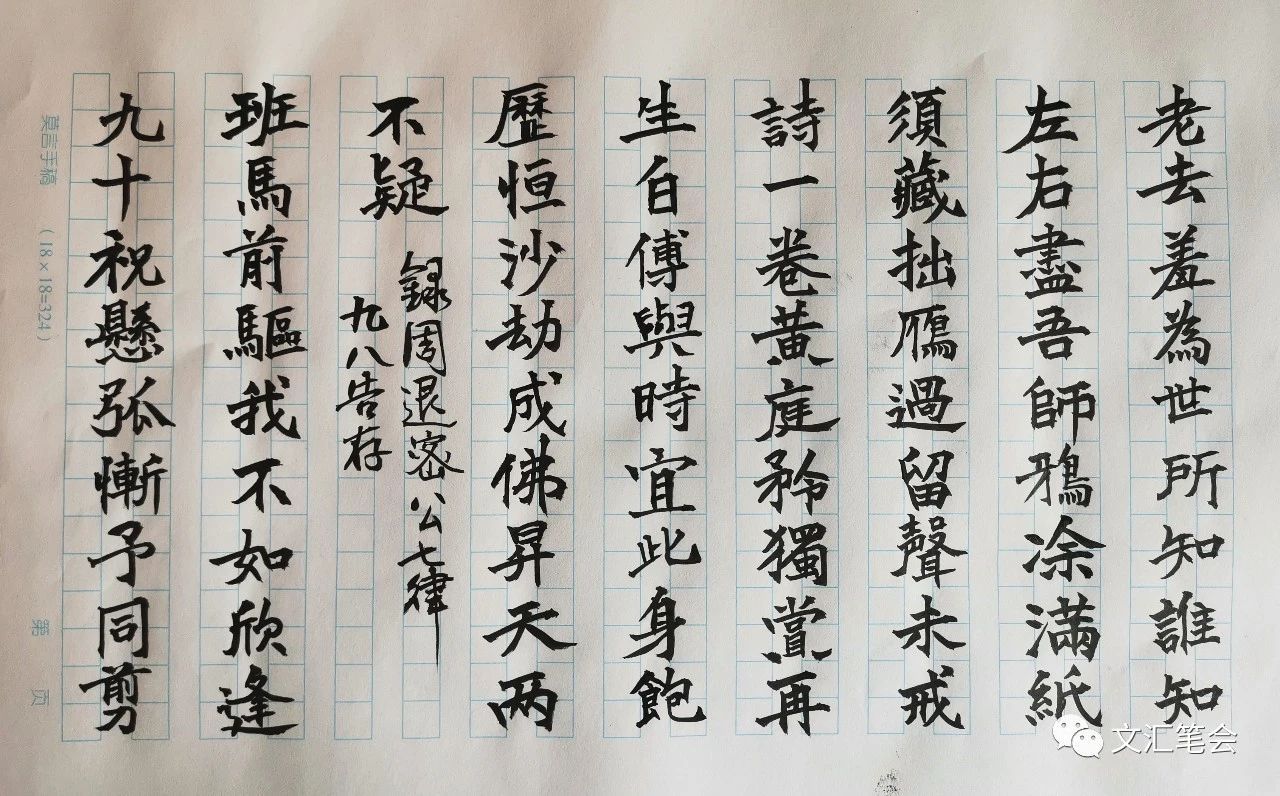 老去羞為世所知誰知
左右盡吾師鴉涂滿紙
須藏拙鴈過留聲未戒
詩一卷黄庭矜獨賞再
生白傅與時宜此身飽
歷恒沙劫成佛昇天两
不疑
録周退密公七律
九八告存
班馬前驅我不如欣逢
九十祝懸弧慚予同剪
莫言手稿 (18×18=324)
第 页
文汇笔会